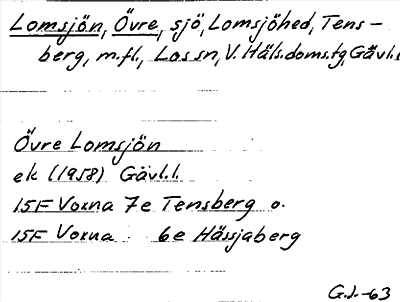 Lomsjön, Övre, sjö, Lomsjöhed, Tens-
berg, m.fl., Los sn, V. Häls. doms. tg, Gävl. l
Övre Lomsjön
ek (1958) Gävl. l.
15F Voxna 7e Tensberg o.
15F Voxna 6e Hässjaberg
G.J.-63